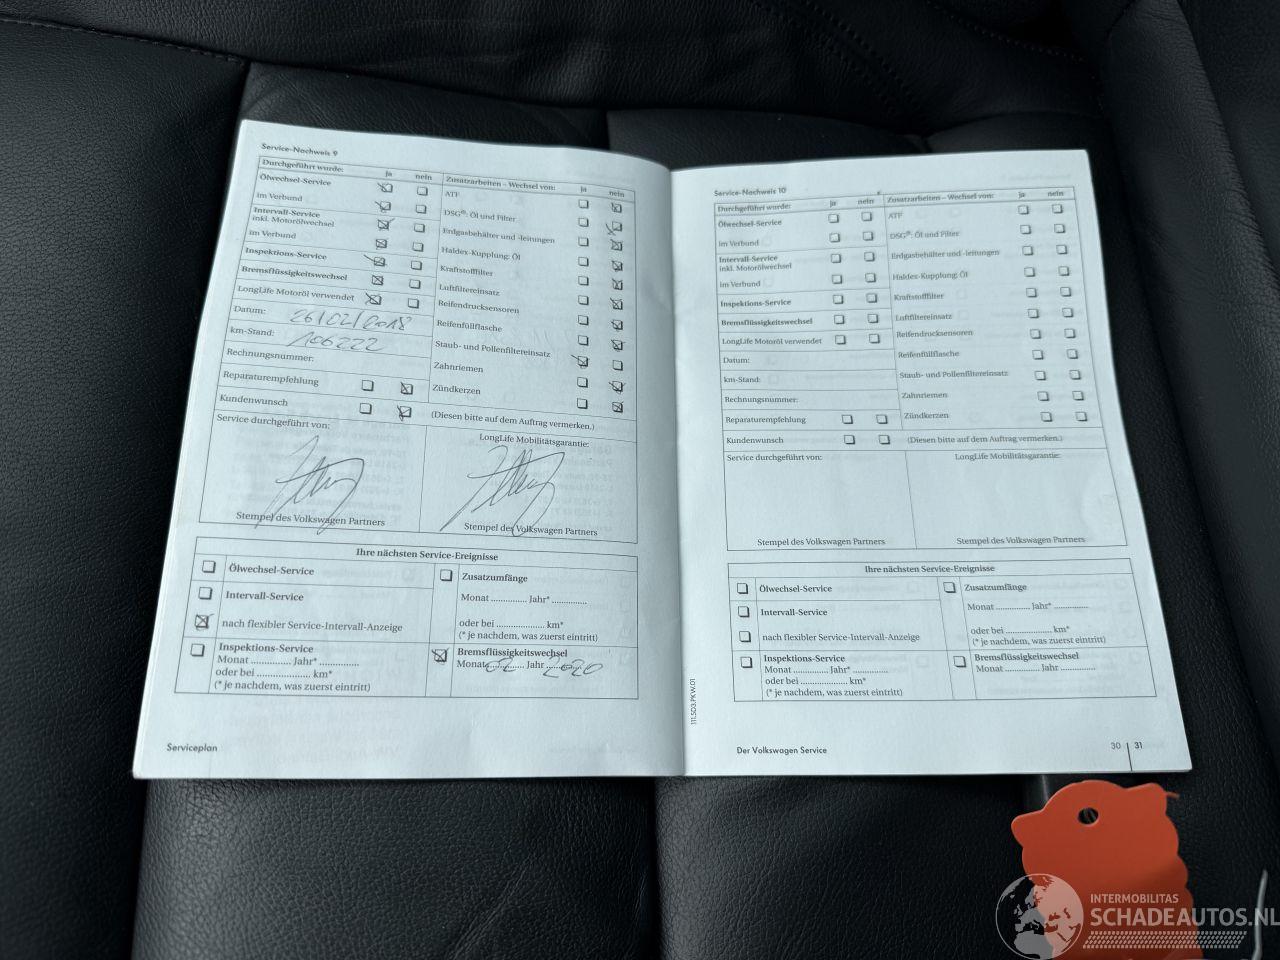 Service-Nachweis 9
Durchgeführt wurde: ja nein
Ölwechsel-Service
im Verbund
Intervall-Service
inkl. Motorölwechsel
im Verbund
Inspektions-Service
Bremsflüssigkeitswechsel
LongLife Motoröl verwendet
Datum: 26/02/2018
km-Stand: 106222
Rechnungsnummer:
Reparaturempfehlung
Kundenwunsch
Zusatzarbeiten – Wechsel von: ja nein
ATF
DSG®: Öl und Filter
Erdgasbehälter und -leitungen
Haldex-Kupplung: Öl
Kraftstofffilter
Luftfiltereinsatz
Reifendrucksensoren
Reifenfüllflasche
Staub- und Pollenfiltereinsatz
Zahnriemen
Zündkerzen
(Diesen bitte auf dem Auftrag vermerken.)
Service durchgeführt von:
LongLife Mobilitätsgarantie:
Stempel des Volkswagen Partners
Stempel des Volkswagen Partners
Ihre nächsten Service-Ereignisse
Ölwechsel-Service
Intervall-Service
nach flexibler Service-Intervall-Anzeige
Inspektions-Service
Monat .............. Jahr* ..............
oder bei .................... km*
(* je nachdem, was zuerst eintritt)
Zusatzumfänge
Monat .............. Jahr* ..............
oder bei .................... km*
(* je nachdem, was zuerst eintritt)
Bremsflüssigkeitswechsel
Monat 02 Jahr 2020
Serviceplan
Service-Nachweis 10
Durchgeführt wurde: ja nein
Ölwechsel-Service
im Verbund
Intervall-Service
inkl. Motorölwechsel
im Verbund
Inspektions-Service
Bremsflüssigkeitswechsel
LongLife Motoröl verwendet
Datum:
km-Stand:
Rechnungsnummer:
Reparaturempfehlung
Kundenwunsch
Zusatzarbeiten – Wechsel von: ja nein
ATF
DSG®: Öl und Filter
Erdgasbehälter und -leitungen
Haldex-Kupplung: Öl
Kraftstofffilter
Luftfiltereinsatz
Reifendrucksensoren
Reifenfüllflasche
Staub- und Pollenfiltereinsatz
Zahnriemen
Zündkerzen
(Diesen bitte auf dem Auftrag vermerken.)
Service durchgeführt von:
LongLife Mobilitätsgarantie:
Stempel des Volkswagen Partners
Stempel des Volkswagen Partners
Ihre nächsten Service-Ereignisse
Ölwechsel-Service
Intervall-Service
nach flexibler Service-Intervall-Anzeige
Inspektions-Service
Monat .............. Jahr* ..............
oder bei .................... km*
(* je nachdem, was zuerst eintritt)
Zusatzumfänge
Monat .............. Jahr* ..............
oder bei .................... km*
(* je nachdem, was zuerst eintritt)
Bremsflüssigkeitswechsel
Monat .............. Jahr ..............
111.5D3.PKW.01
Der Volkswagen Service
30 | 31
INTERMOBILITAS
SCHADEAUTOS.NL